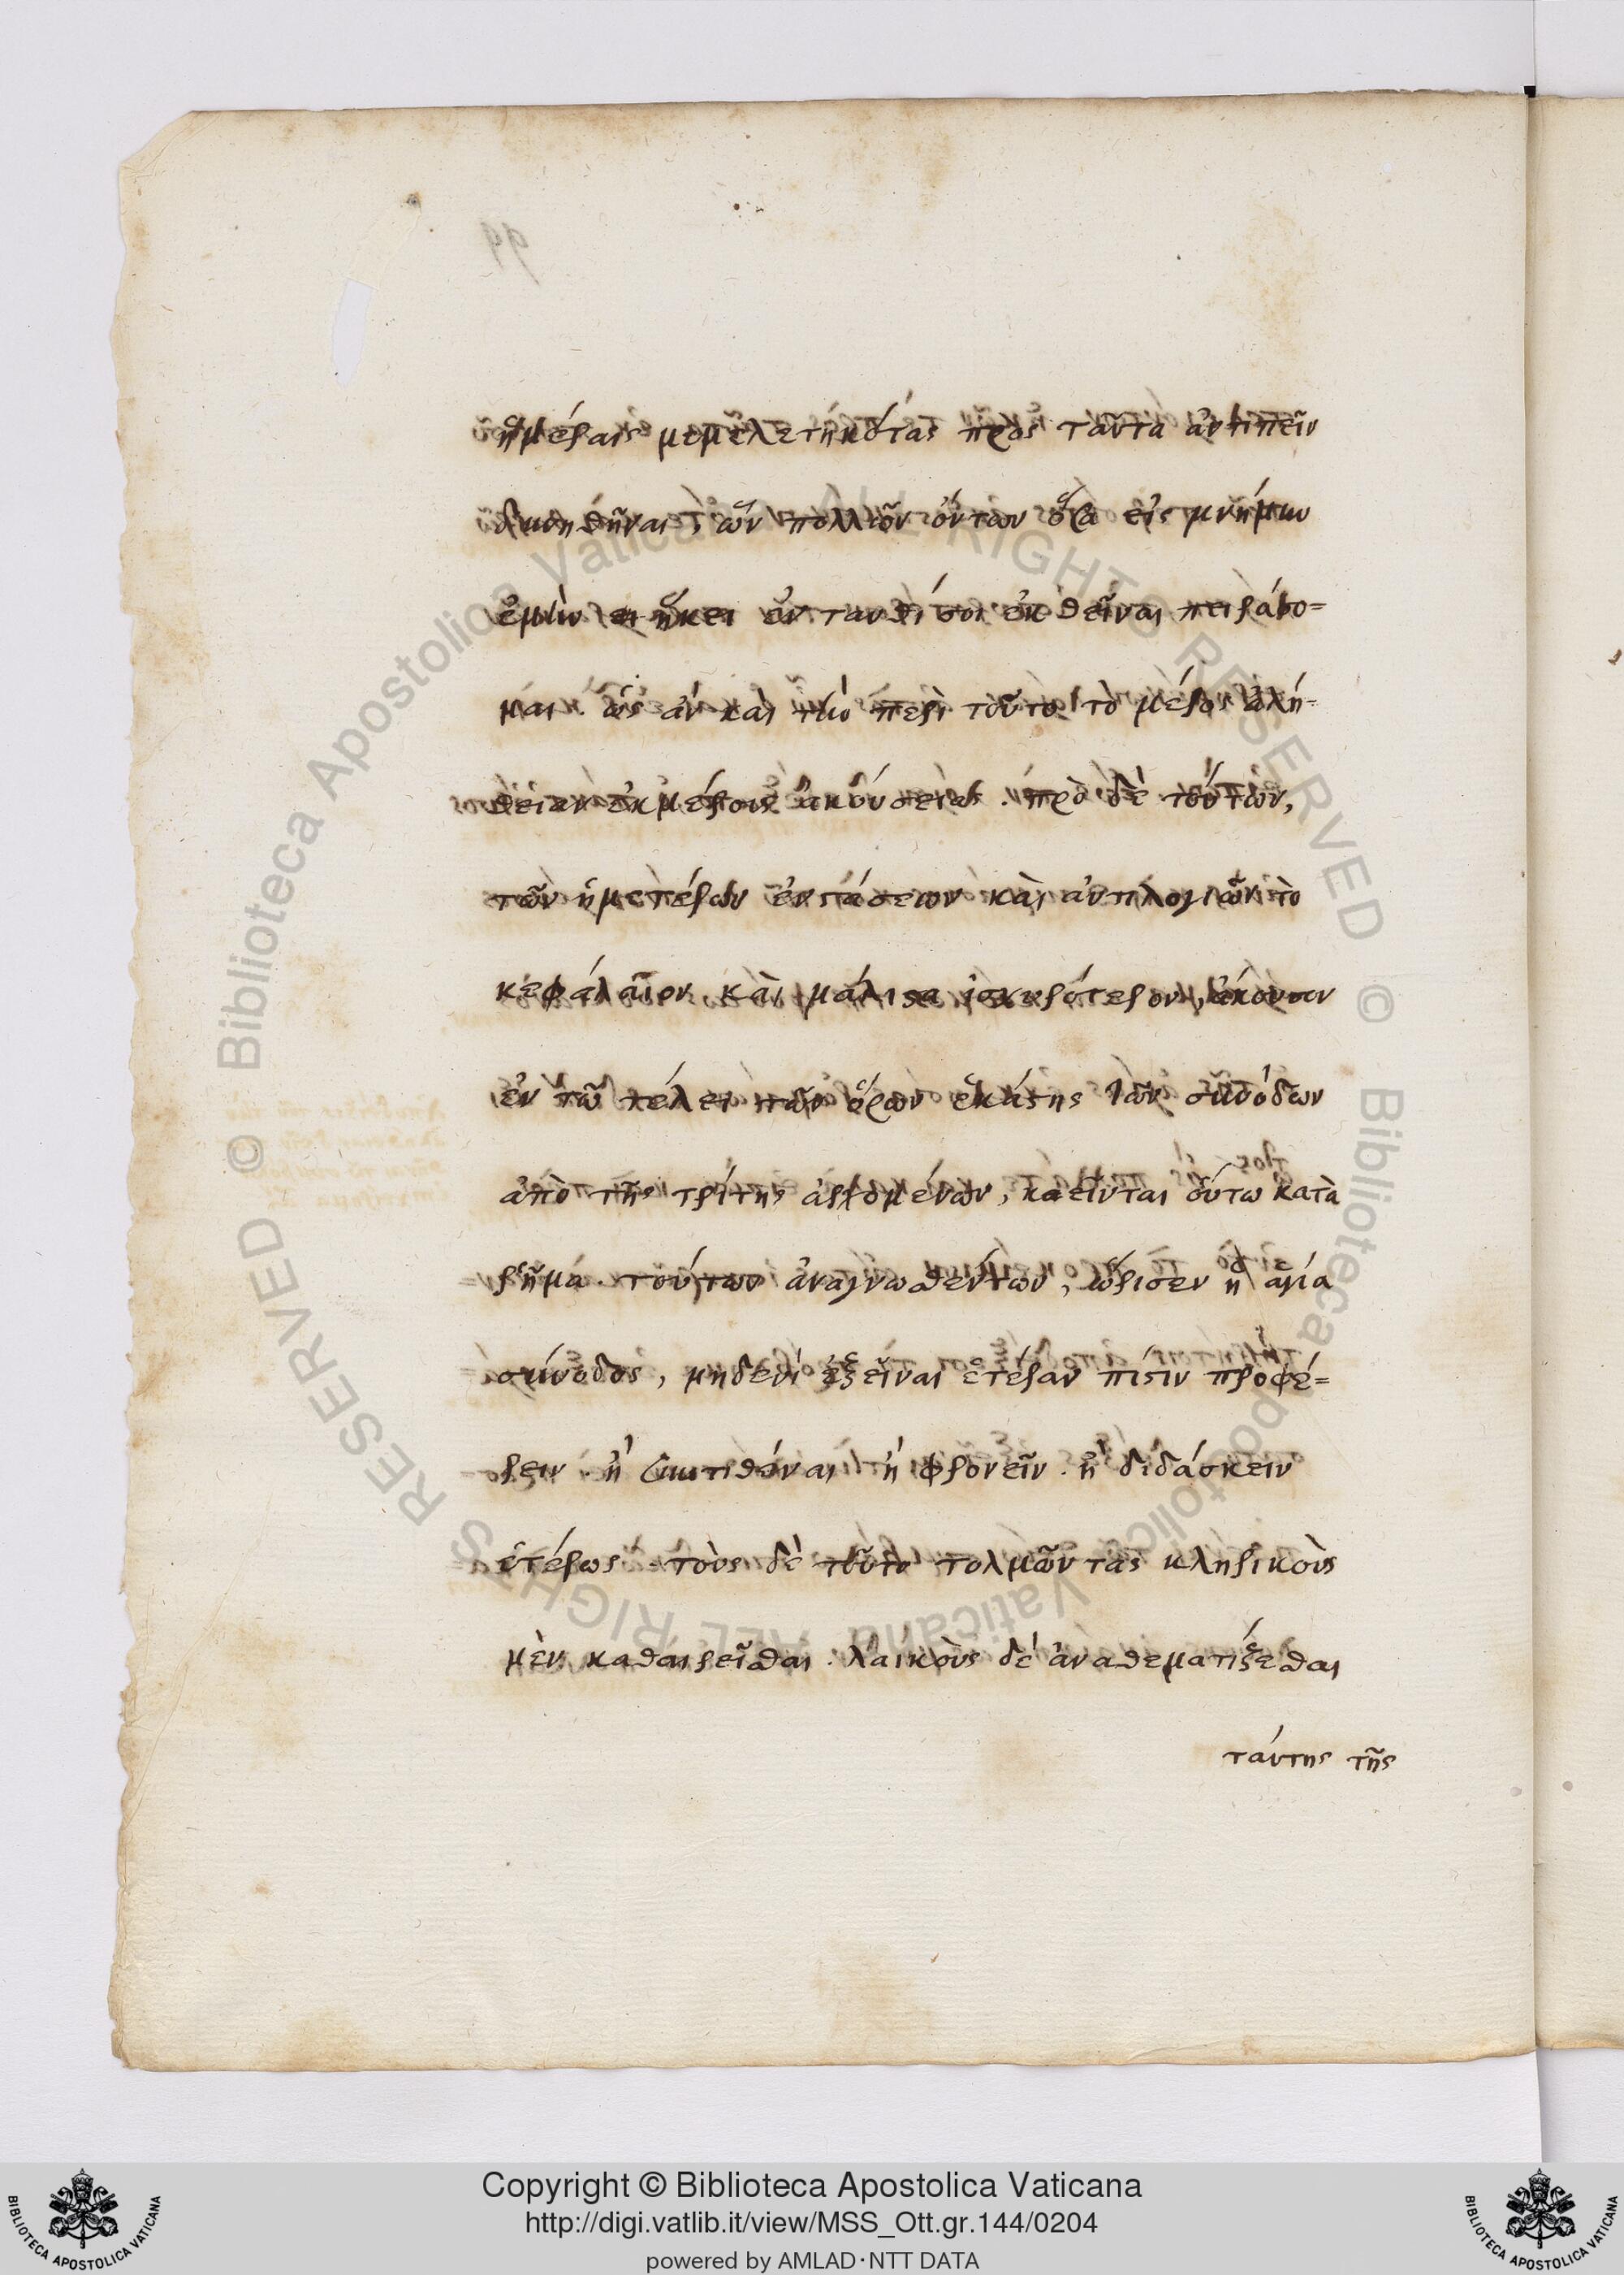 99
ἡμέραις μεμελετηκότας πρὸς ταῦτα ἀντιπεῖν
δυνηθῆναι, ὧν πολλῶν ὄντων ὅσα εἰς μνήμην
ἐμὴν ἥκει ἐνταυθί σοι ἐκθεῖναι πειράσο=
μαι. ὡς ἂν καὶ τὴν περὶ τοῦτο τὸ μέρος ἀλή=
θειαν ἐκ μέρους ἀκούσειας. πρὸ δὲ τούτων,
τῶν ἡμετέρων ἐντάσεων καὶ ἀντιλογιῶν τὸ
κεφάλαιον καὶ μάλιστα ἰσχυρότερον, ἄκουσον
ἐν τῷ τέλει τῶν ὅρων ἑκάστης τῶν συνόδων
ἀπὸ τῆς τρίτης ἀρξομένων, κεῖνται οὕτω κατὰ
ῥῆμα. τούτων ἀναγνωσθέντων, ὥρισεν ἡ ἁγία
σύνοδος, μηδενὶ ἐξεῖναι ἑτέραν πίστιν προφέ=
ρειν. ἢ συντιθέναι ἢ φρονεῖν. ἢ διδάσκειν
ἑτέρως. τοὺς δὲ τοῦτο τολμῶντας κληρικοὺς
μὲν καθαιρεῖσθαι. λαϊκοὺς δὲ ἀναθεματίζεσθαι
ταύτης τῆς
© Biblioteca Apostolica Vaticana ALL RIGHTS RESERVED © Biblioteca Apostolica Vaticana ALL RIGHTS RESERVED
Copyright © Biblioteca Apostolica Vaticana
http://digi.vatlib.it/view/MSS_Ott.gr.144/0204
powered by AMLAD·NTT DATA
BIBLIOTECA APOSTOLICA VATICANA
BIBLIOTECA APOSTOLICA VATICANA